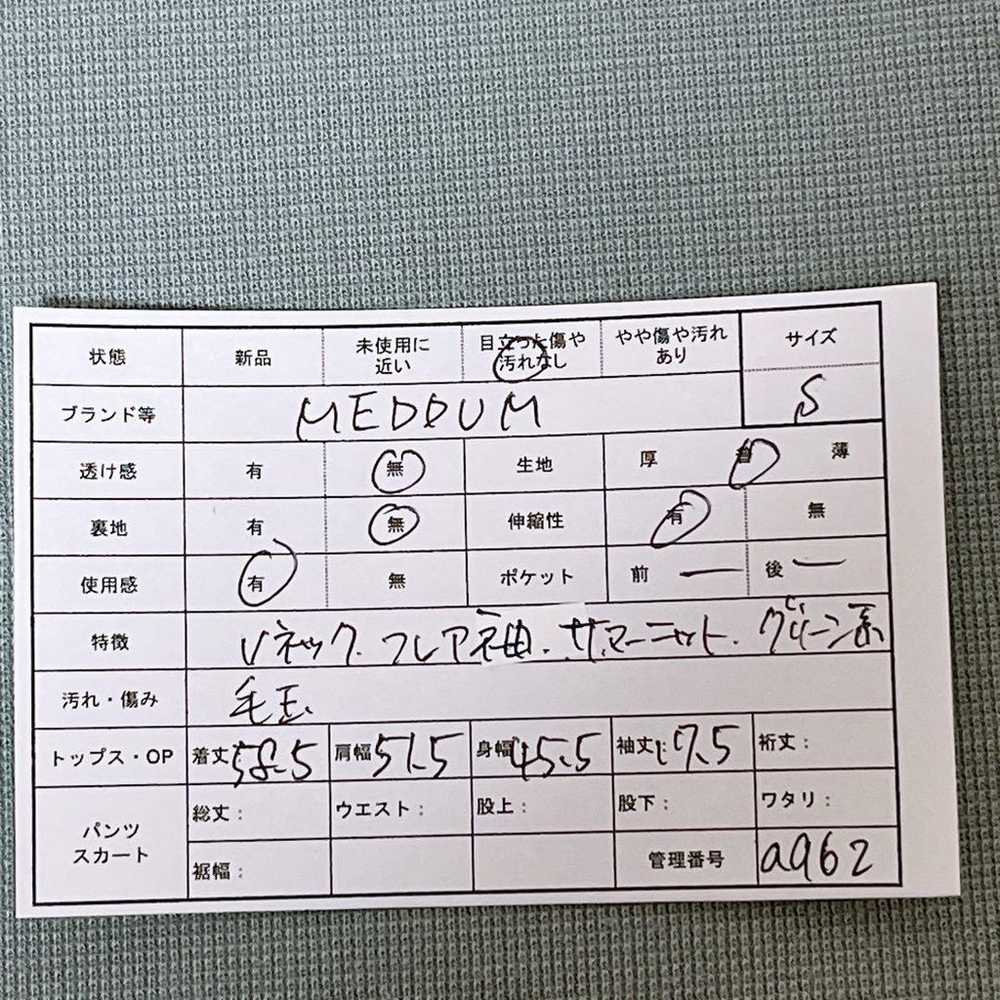 状態 新品 未使用に近い 目立った傷や汚れなし やや傷や汚れあり サイズ
ブランド等 MEDDUM S
透け感 有 無 生地 厚 普 薄
裏地 有 無 伸縮性 有 無
使用感 有 無 ポケット 前 — 後 —
特徴 Vネック.フレア袖.サマーニット.グリーン系
汚れ・傷み 毛玉
トップス・OP 着丈58.5 肩幅51.5 身幅45.5 袖丈:17.5 裄丈:
パンツスカート 総丈: ウエスト: 股上: 股下: ワタリ:
裾幅: 管理番号 a962